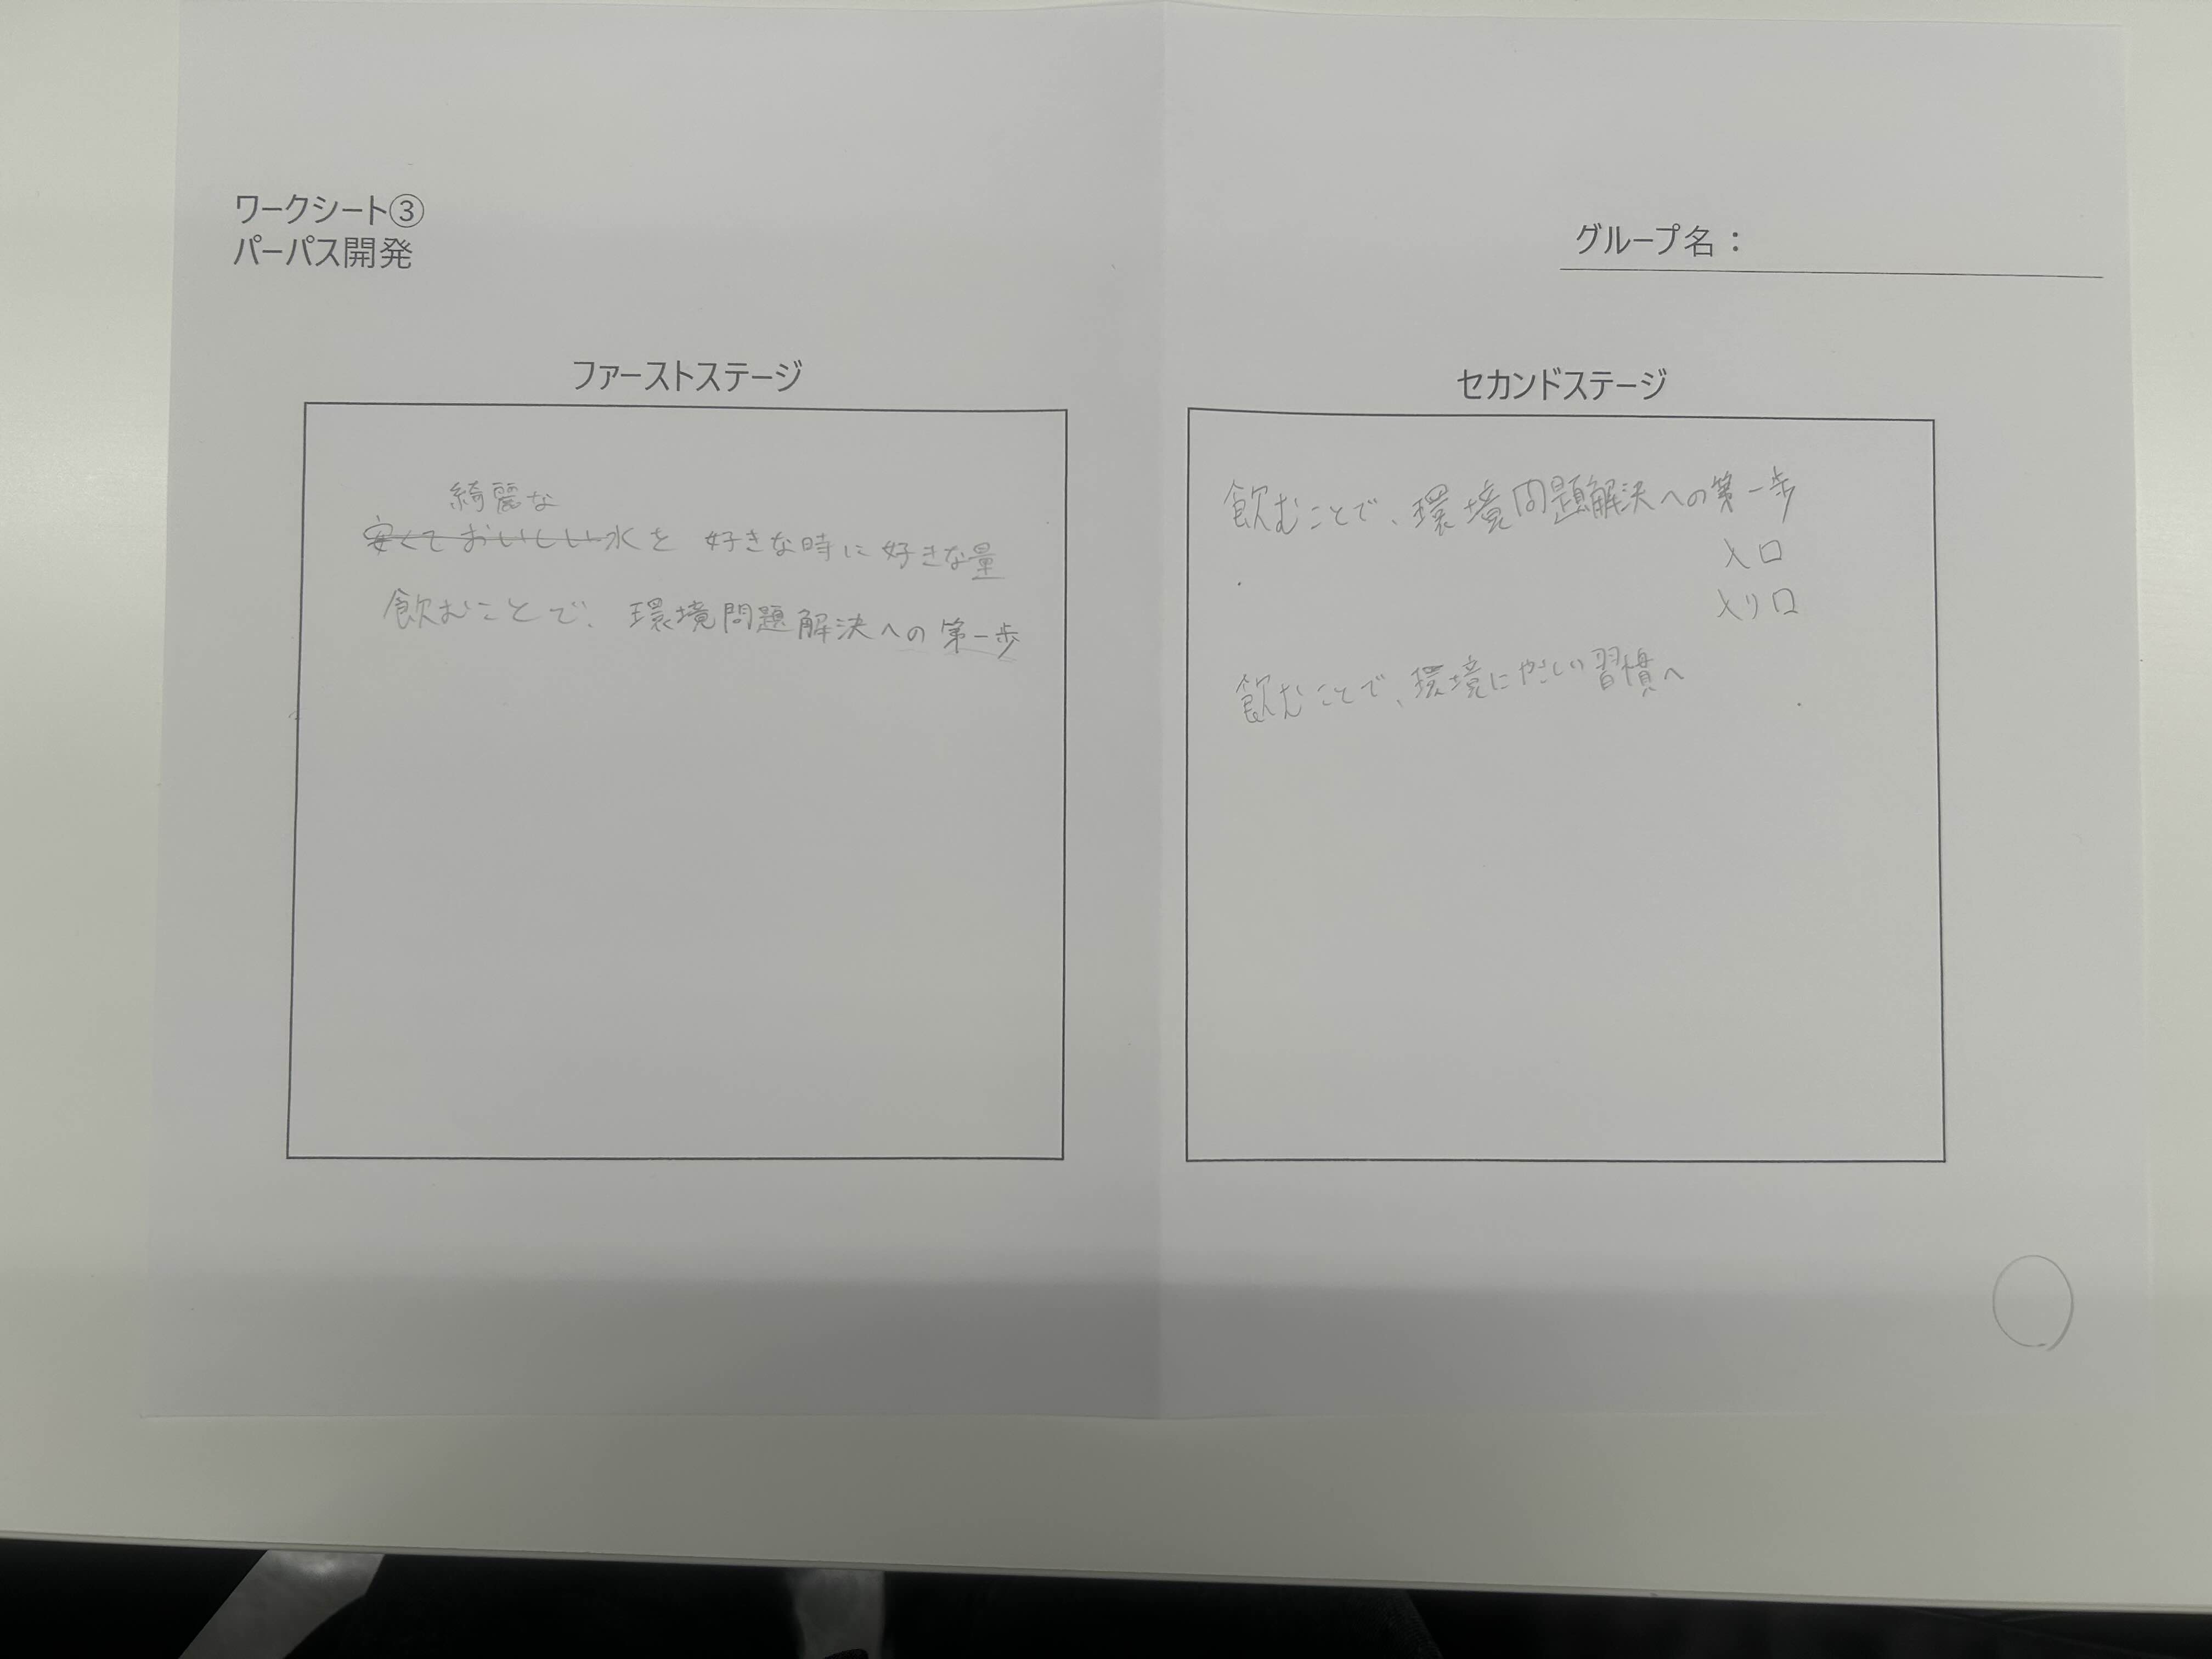 ワークシート③
パーパス開発
グループ名：
ファーストステージ
綺麗な
安くておいしい水を 好きな時に好きな量
飲むことで、環境問題解決への第一歩
セカンドステージ
飲むことで、環境問題解決への第一歩
入口
入り口
飲むことで、環境にやさしい習慣へ